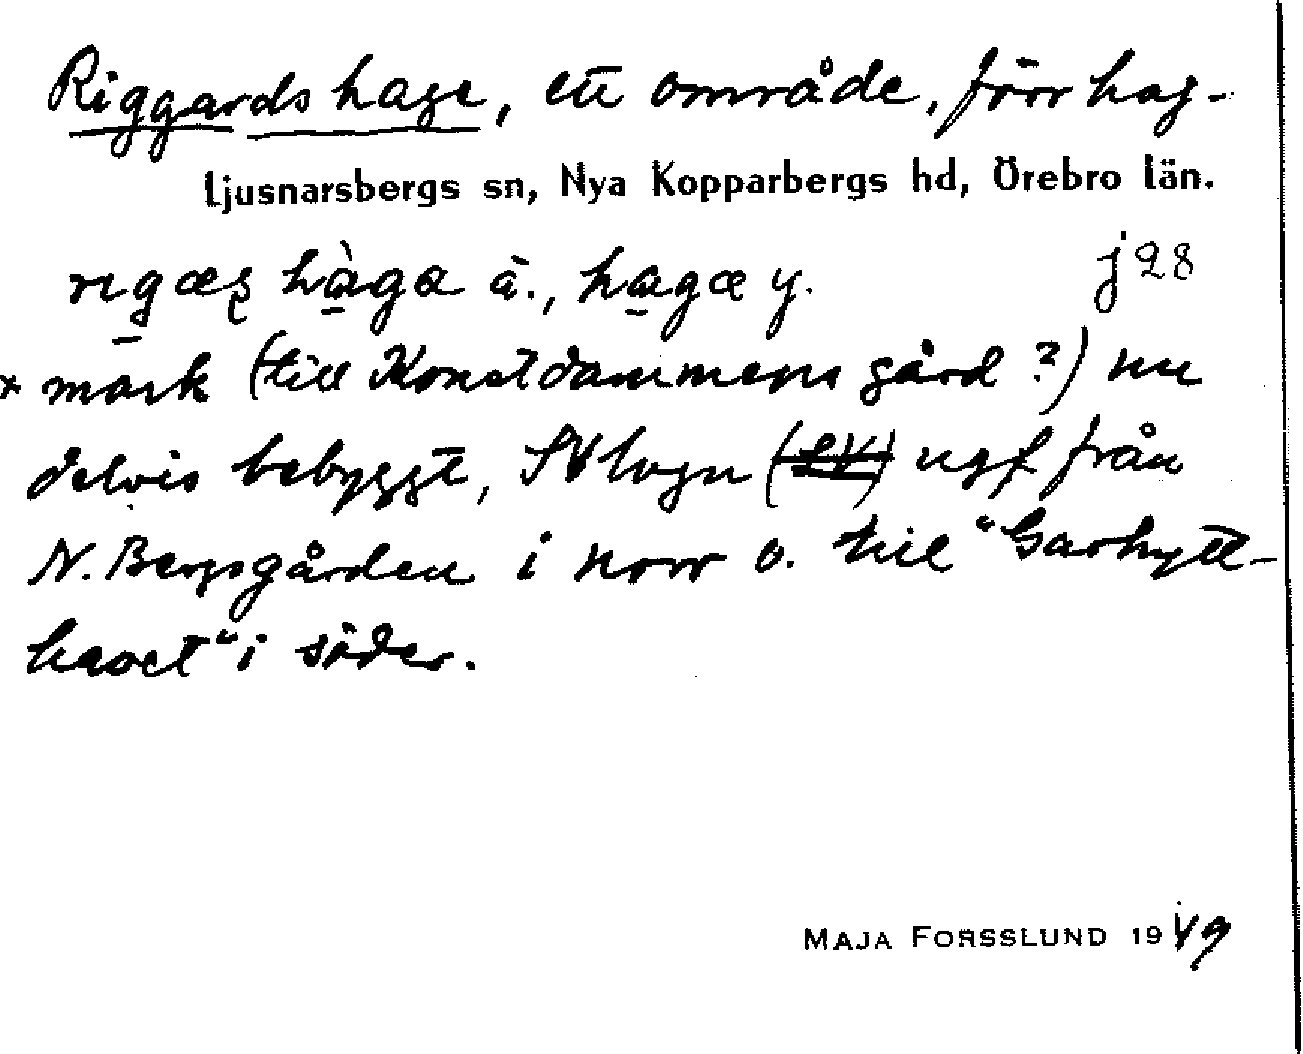 Riggards hage, ett område, förr hag-
Ljusnarsbergs sn, Nya Kopparbergs hd, Örebro län.
rıgæʂ hàga ä., hagæ y. j28
x mark (till Konstdammens gård?) nu
delvis bebyggt, SV hvgn ugf från
N. Bergsgården i norr o. till "Garhytt-
havet" i söder.
MAJA FORSSLUND 1949